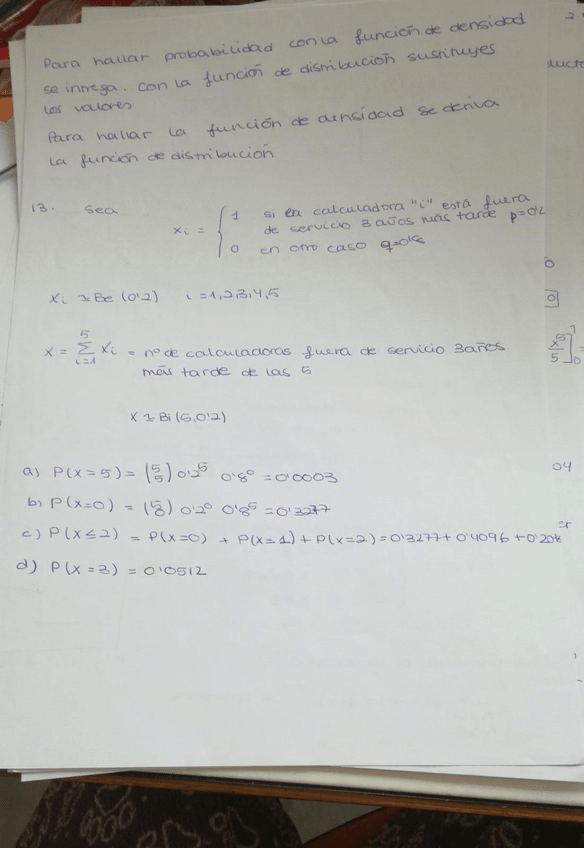 Para hallar probabilidad con la función de densidad
se integra. con la función de distribución sustituyes
los valores
Para hallar la función de densidad se deriva
la función de distribución
13. Sea
Xi = { 1 si la calculadora "i" está fuera
de servicio 3 años más tarde p=0'2
0 en otro caso q=0'8
Xi ~ Be (0'2) i = 1,2,3,4,5
X = Σ_{i=1}^{5} Xi = nº de calculadoras fuera de servicio 3 años
más tarde de las 5
X ~ Bi (5,0'2)
a) P(X=5) = (5 5) 0'2⁵ 0'8⁰ = 0'0003
b) P(X=0) = (5 0) 0'2⁰ 0'8⁵ = 0'3277
c) P(X≤2) = P(X=0) + P(X=1) + P(X=2) = 0'3277 + 0'4096 + 0'204
d) P(X=3) = 0'0512